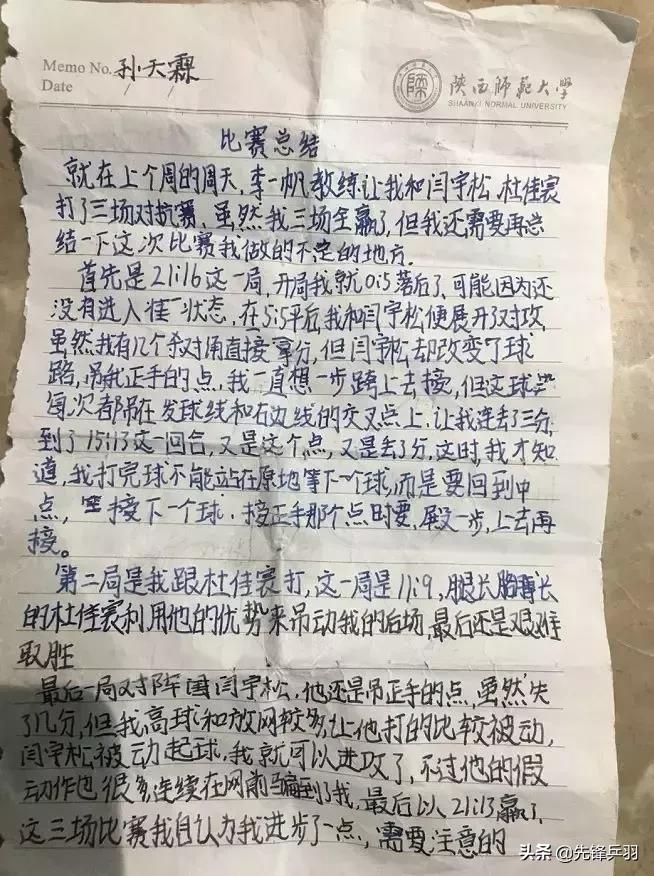 Memo No. 孙天霖
Date / /
陕西师范大学
SHAANXI NORMAL UNIVERSITY
比赛总结
就在上个周的周天,李一帆教练让我和闫宇松、杜佳寰
打了三场对抗赛,虽然我三场全赢了,但我还需要再总
结一下这次比赛我做的不足的地方.
首先是21:16这一局,开局我就0:5落后了,可能因为还
没有进入状态,在5:5平后,我和闫宇松便展开了对攻,
虽然我有几个杀对角直接拿分,但闫宇松却改变了球
路,吊我正手的点,我一直想一步跨上去接,但这球
每次都吊在发球线和右边线的交叉点上,让我连丢了三分,
到了15:13这一回合,又是这个点,又是丢了分,这时,我才知
道,我打完球不能站在原地等下一个球,而是要回到中
点,接下一个球.接正手那个点时要,殿一步,上去再
接。
第二局是我跟杜佳寰打,这一局是11:9,腿长胳膊长
的杜佳寰利用他的优势来吊动我的后场,最后还是艰难
取胜
最后一局对阵闫宇松,他还是吊正手的点,虽然失
了几分,但我高球和放网较多,让他打的比较被动,
闫宇松被动起球,我就可以进攻了,不过他的假
动作也很多,连续在网前骗到了我,最后以21:13赢了,
这三场比赛我自认为我进步了一点,需要注意的
头条 @先锋乒羽